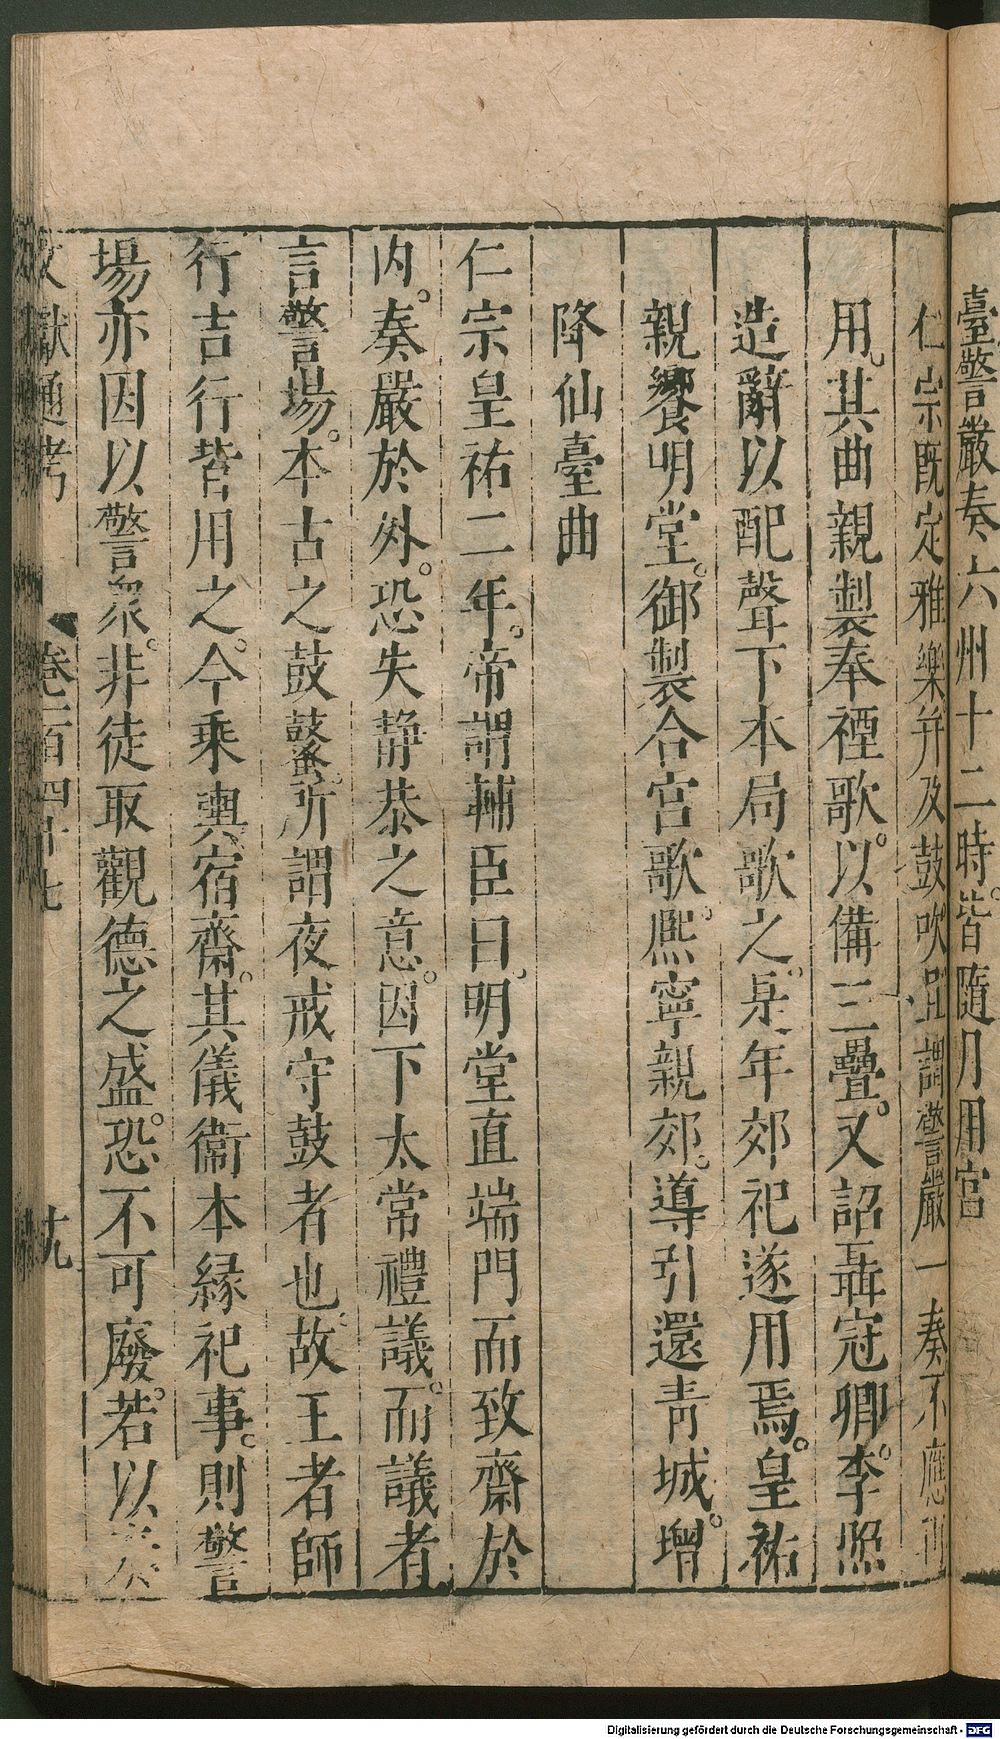 臺警嚴奏六州十二時。皆隨月用宮
仁宗既定雅樂并及鼓吹且謂警嚴一奏不應再
用。其曲親製奉禋歌。以備三疊。又詔聶冠卿。李照
造辭以配聲下本局歌之。是年郊祀遂用焉。皇祐
親饗明堂。御製合宮歌。熙寧親郊。導引還青城。增
降仙臺曲
仁宗皇祐二年。帝謂輔臣曰。明堂直端門而致齋於
內。奏嚴於外。恐失靜恭之意。因下太常禮議。而議者
言警場。本古之鼓鼜。所謂夜戒守鼓者也。故王者師
行吉行皆用之。今乘輿宿齋。其儀衞本緣祀事。則警
場亦因以警衆。非徒取觀德之盛。恐不可廢。若以
文獻通考 卷一百四十七 十九
Digitalisierung gefördert durch die Deutsche Forschungsgemeinschaft - DFG